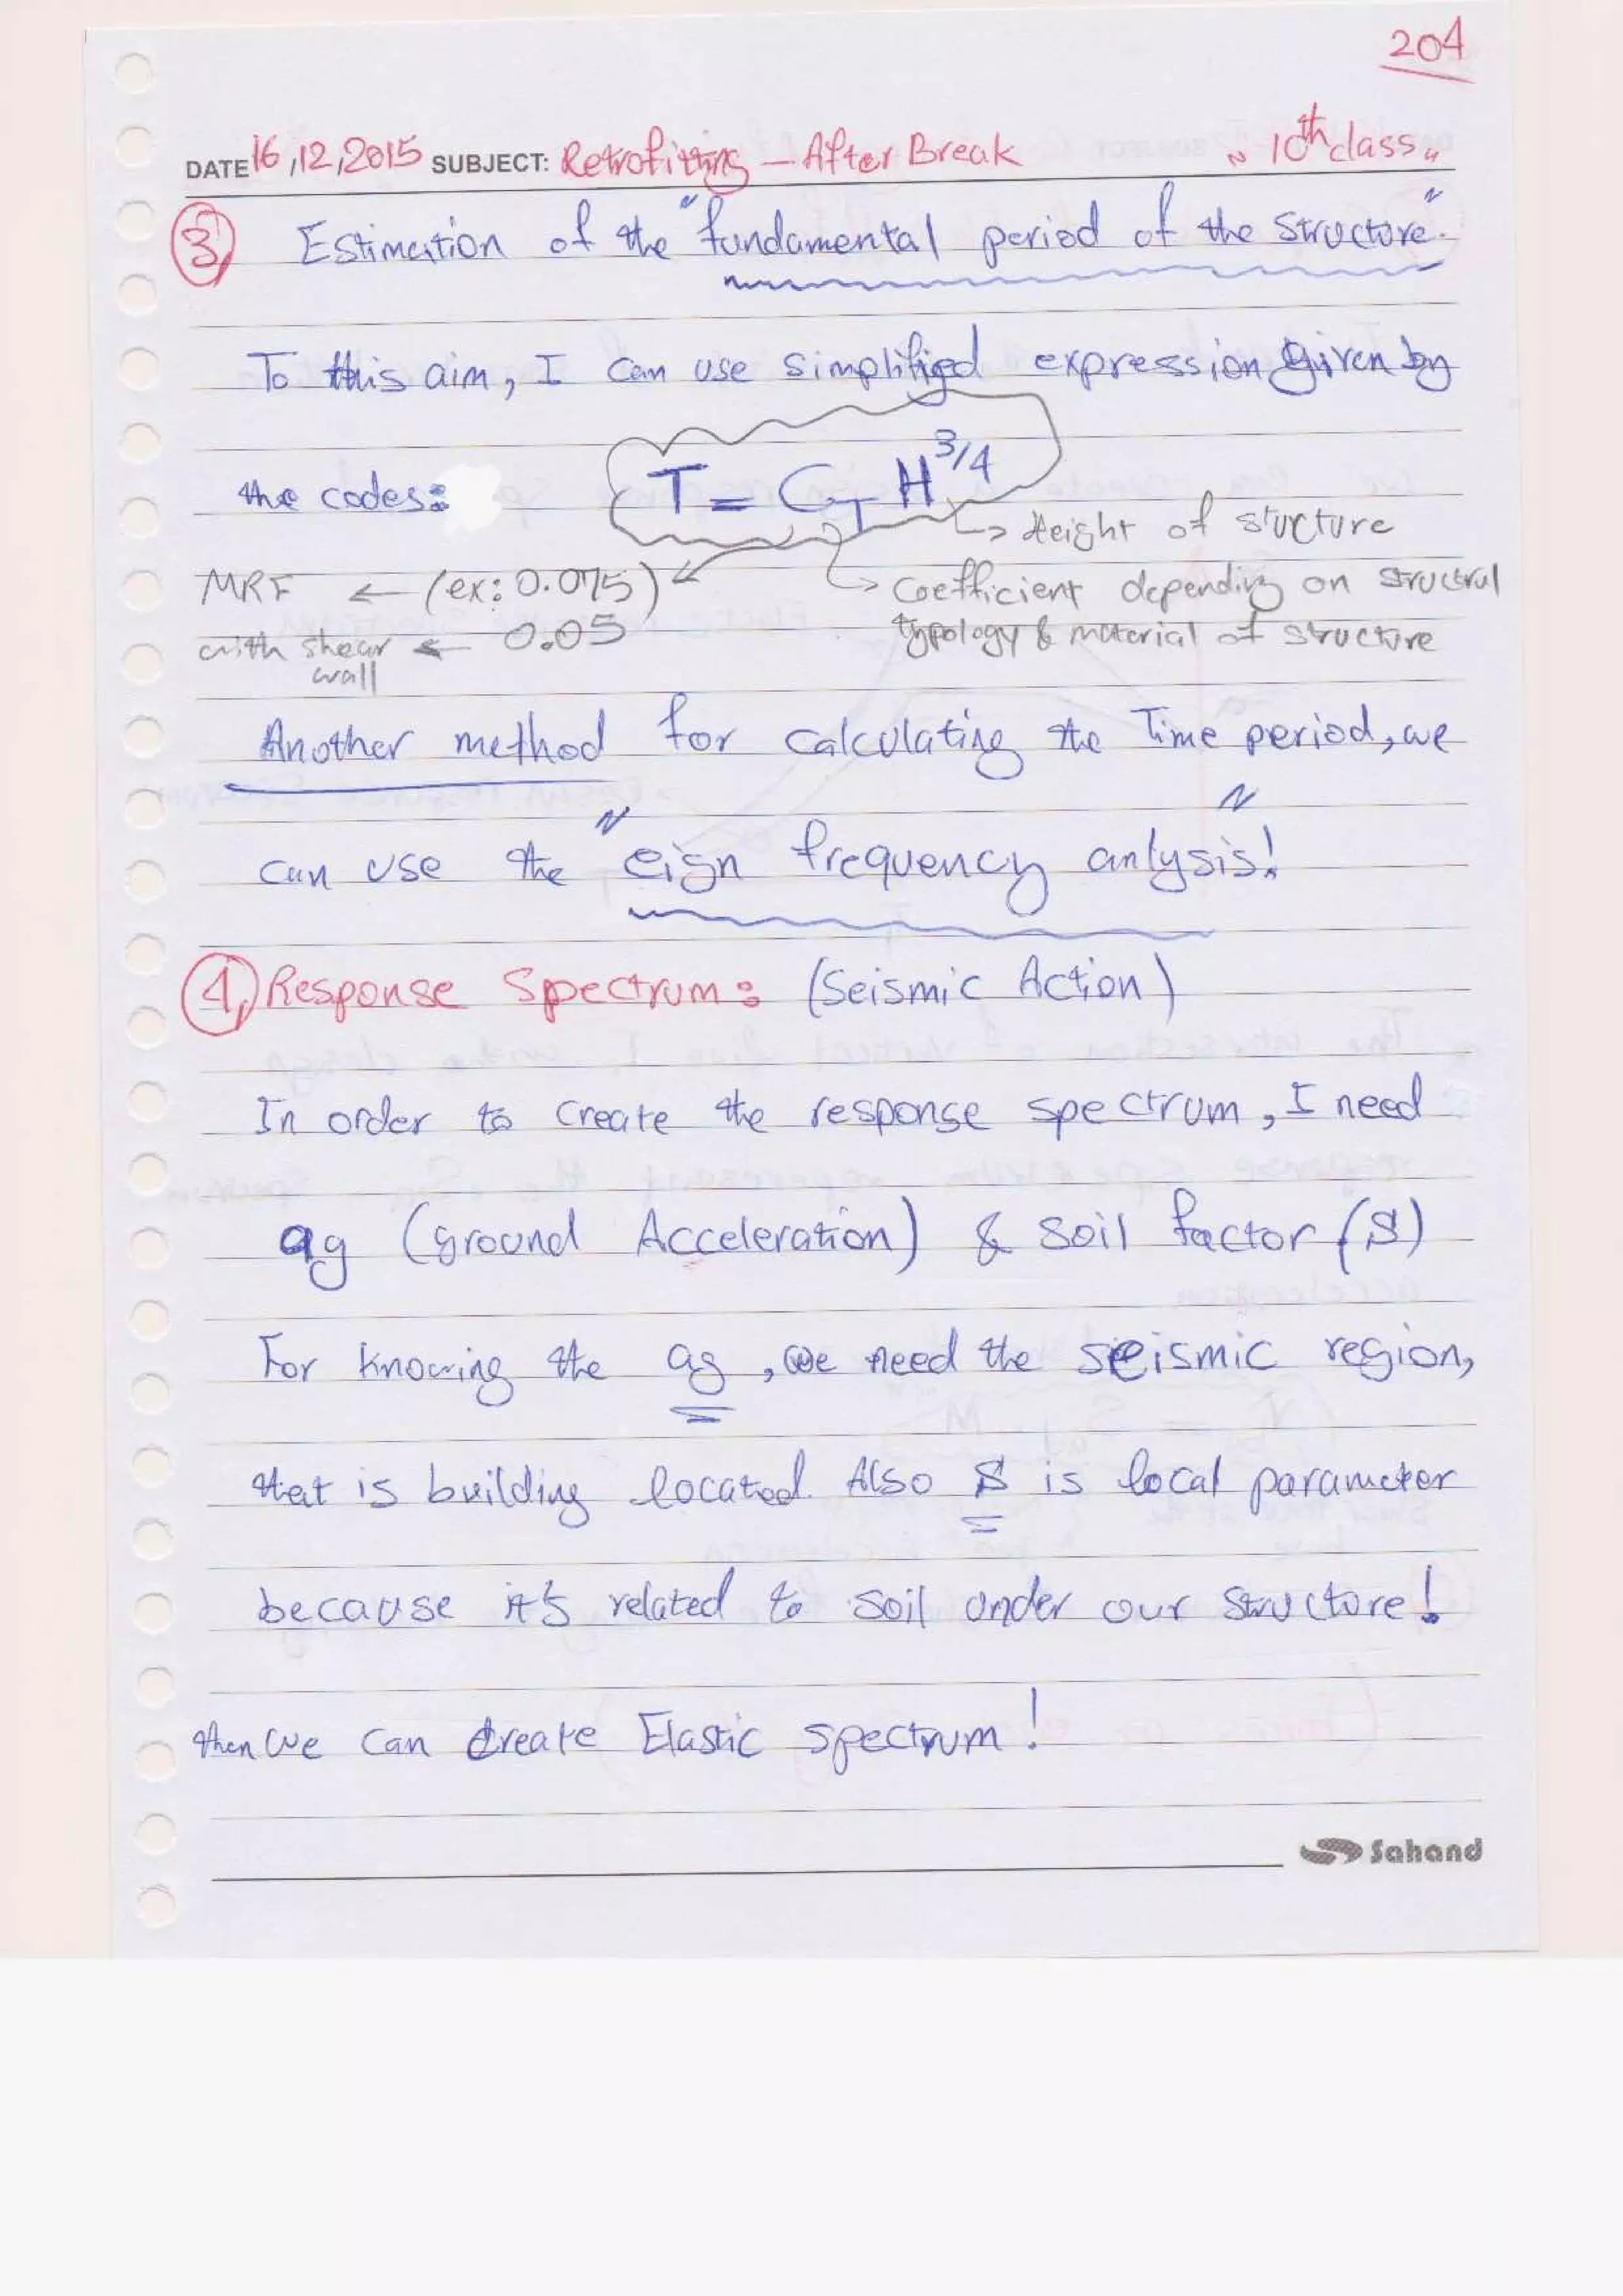 204
DATE 16,12,2015 SUBJECT: Retrofitting - After Break " 10th class "
3, Estimation of the "fundamental period of the structure".
To this aim, I can use simplified expression given by
the codes: T = CT H^3/4
→ Height of structure
MRF ← (ex: 0.075) → Coefficient depending on structural
with shear ← 0.05 typology & material of structure
wall
Another method for calculating the Time period, we
can use the "eign frequency anlysis"!
4, Response Spectrum: (Seismic Action)
In order to create the response spectrum, I need
ag (ground Acceleration) & soil factor (S)
For knowing the ag, we need the seismic region,
that is building located. Also S is local parameter
because it's related to soil under our structure!
then we can create Elastic spectrum!
Sahand